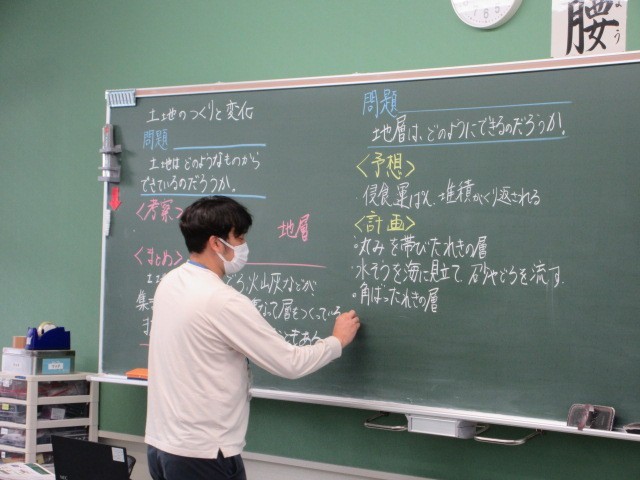 土地のつくりと変化
問題
土地はどのようなものから
できているのだろうか。
<考察>
地層
<まとめ>
火山灰などが、
層をつくっている
問題
地層は、どのようにできるのだろうか。
<予想>
侵食、運ぱん、堆積がくり返される
<計画>
・丸みを帯びたれきの層
・水そうを海に見立て、砂やどろを流す。
・角ばったれきの層
腰